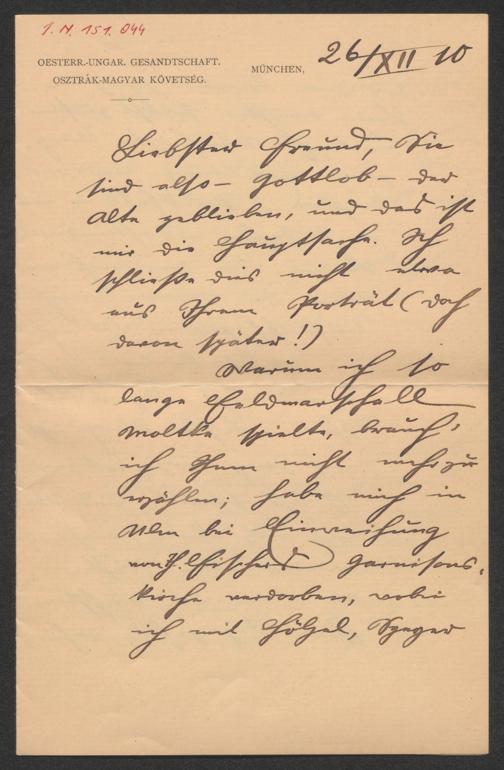 I. N. 151.044
OESTERR.-UNGAR. GESANDTSCHAFT.
OSZTRÁK-MAGYAR KÖVETSÉG.
MÜNCHEN, 26/XII 10
Liebster Freund, Sie
sind also – Gottlob – der
Alte geblieben, und das ist
mir die Hauptsache. Ich
schließe dies nicht etwa
aus Ihrem Porträt (doch
davon später!)
Warum ich so
lange Feldmarschall
Moltke spielte, brauch'
ich Ihnen nicht mehr zu
erzählen; habe mich in
Ulm bei Einweihung
von Th. Fischers Garnisons-
kirche verdorben, wobei
ich mit Hölzel, Speyer